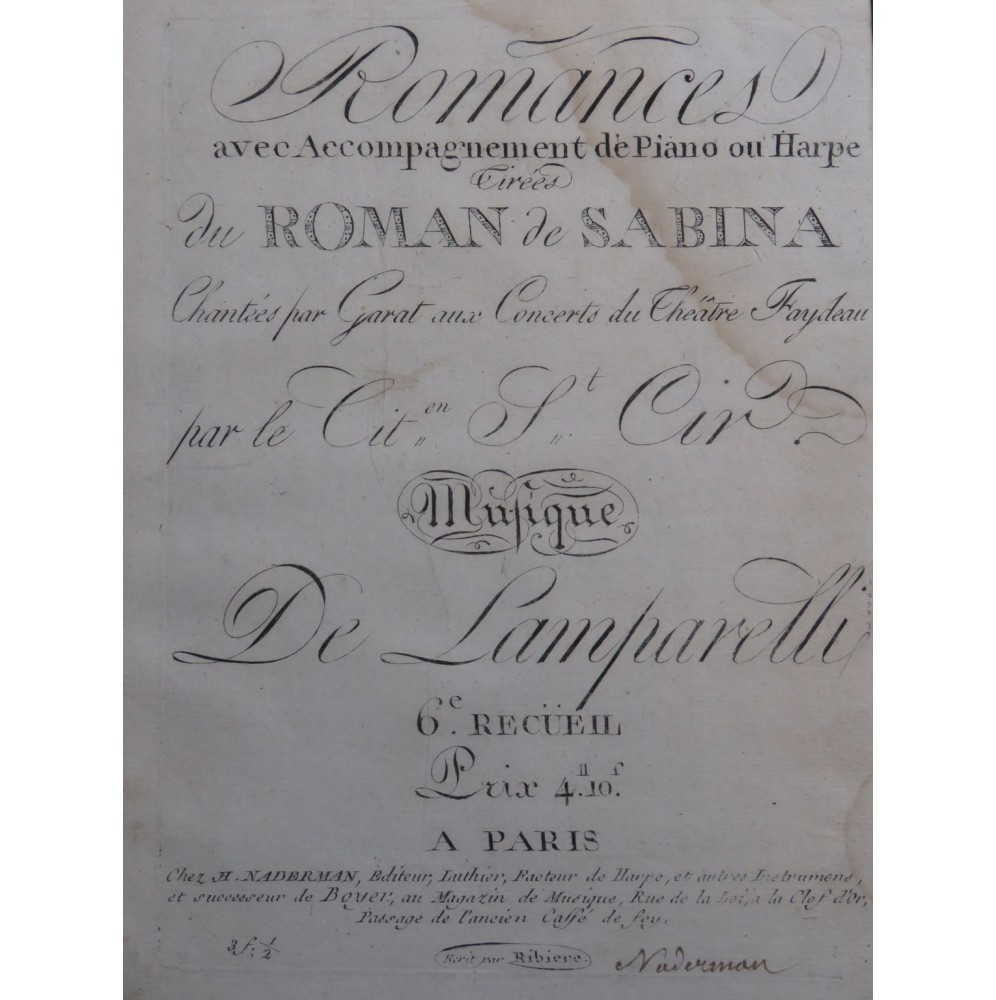 Romances
avec Accompagnement de Piano ou Harpe
Tirées
du ROMAN de SABINA
Chantées par Garat aux Concerts du Théâtre Faydeau
par le Cit.en S.t Cir
Musique
De Lamparelli
6.e RECÜEIL
Prix 4.ll 10.s
A PARIS
Chez H. NADERMAN, Editeur, Luthier, Facteur de Harpe, et autres Instrumens,
et successeur de Boyer, au Magazin de Musique, Rue de la Loi, a la Clef d'or,
Passage de l'ancien Caffé de foy.
3 f. 1/2
Ecrit par Ribiere.
Naderman